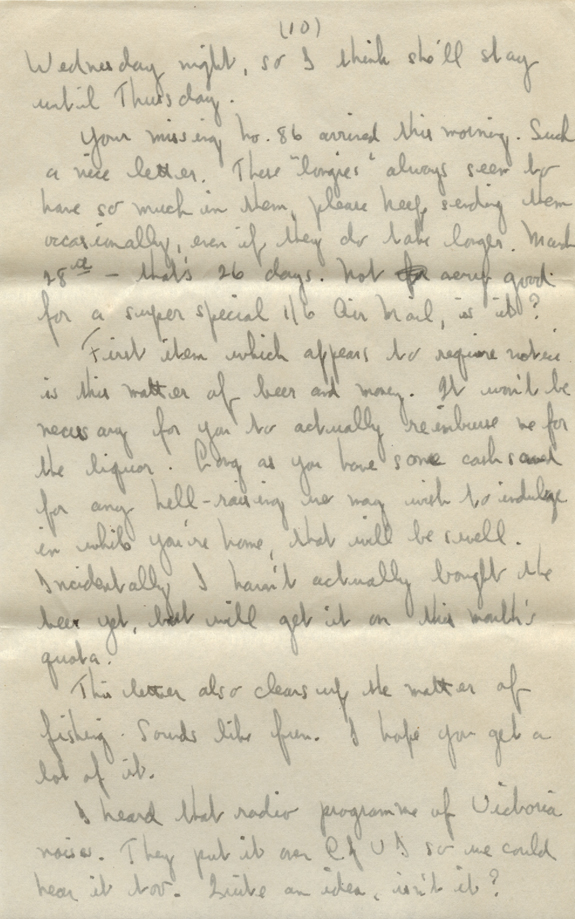 (10)
Wednesday night, so I think she'll stay
until Thursday.
Your missing no. 86 arrived this morning. Such
a nice letter. These "longies" always seem to
have so much in them, please keep sending them
occasionally, even if they do take longer. March
28th - that's 26 days. Not very good
for a super special 1/6 Air Mail, is it?
First item which appears to require notice
is this matter of beer and money. It won't be
necessary for you to actually reimburse me for
the liquor. Long as you have some cash saved
for any hell-raising we may wish to indulge
in while you're home, that will be swell.
Incidentally I haven't actually bought the
beer yet, but will get it on this month's
quota.
This letter also clears up the matter of
fishing. Sounds like fun. I hope you get a
lot of it.
I heard that radio programme of Victoria
noises. They put it over so we could
hear it too. Quite an idea, isn't it?